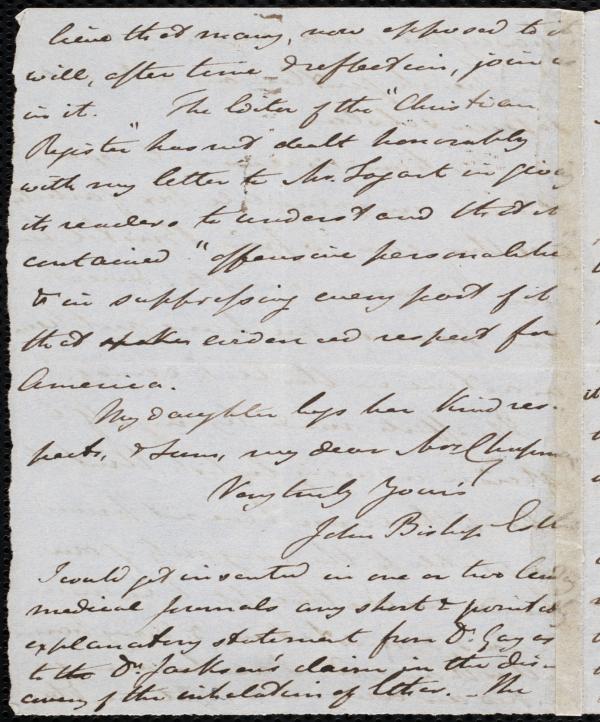 lieve that many, now opposed to it
will, after time & reflection, join us
in it. The Editor of the "Christian
Register" has not dealt honorably
with my letter to Mr. in giving
its readers to understand that it
contained "offensive personalities
& in suppressing every part of it
that evidenced respect for
America.
My daughter begs her kind res-
pects, & I am, my dear Mrs Chapman
Very truly Yours
John Bishop Estlin
I could get inserted in one or two leading
medical journals any short & pointed
explanatory statement from Dr. Gay as
to the Dr. Jackson's claim in the dis-
covery of the inhalation of Ether. The